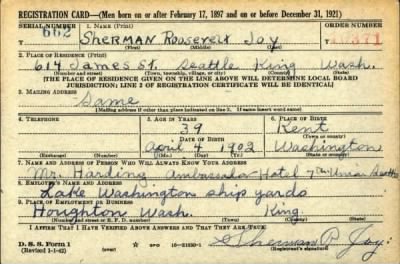 REGISTRATION CARD—(Men born on or after February 17, 1897 and on or before December 31, 1921)
SERIAL NUMBER 1. NAME (Print) ORDER NUMBER
662 Sherman Roosevelt Joy 11371
(First) (Middle) (Last)
2. PLACE OF RESIDENCE (Print)
614 James St. Seattle King Wash.
(Number and street) (Town, township, village, or city) (County) (State)
[THE PLACE OF RESIDENCE GIVEN ON THE LINE ABOVE WILL DETERMINE LOCAL BOARD
JURISDICTION; LINE 2 OF REGISTRATION CERTIFICATE WILL BE IDENTICAL]
3. MAILING ADDRESS
Same
[Mailing address if other than place indicated on line 2. If same insert word same]
4. TELEPHONE 5. AGE IN YEARS 6. PLACE OF BIRTH
39 Kent
DATE OF BIRTH (Town or county)
April 4 1902 Washington
(Exchange) (Number) (Mo.) (Day) (Yr.) (State or country)
7. NAME AND ADDRESS OF PERSON WHO WILL ALWAYS KNOW YOUR ADDRESS
Mr. Harding Ambassador Hotel 7th Union Seattle
8. EMPLOYER'S NAME AND ADDRESS
Lake Washington ship yards
9. PLACE OF EMPLOYMENT OR BUSINESS
Houghton Wash. King
(Number and street or R. F. D. number) (Town) (County) (State)
I AFFIRM THAT I HAVE VERIFIED ABOVE ANSWERS AND THAT THEY ARE TRUE.
D. S. S. Form 1
(Revised 1-1-42) GPO 16—21630-1 Sherman R. Joy
(Registrant's signature)